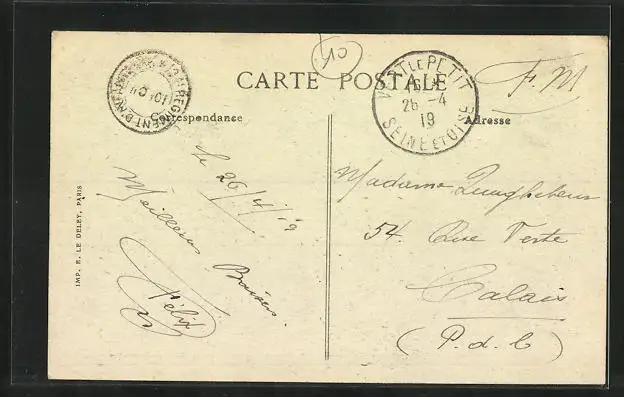 10
F. M
CARTE POSTALE
LE PETIT
26 -4
19
SEINE ET OISE
REGIMENT D'
Correspondance
Adresse
le 26/4/19
Meilleurs Baisers.
Félix
Madame
54. Rue Verte
Calais
(P. d. C)
IMP. E. LE DELEY, PARIS